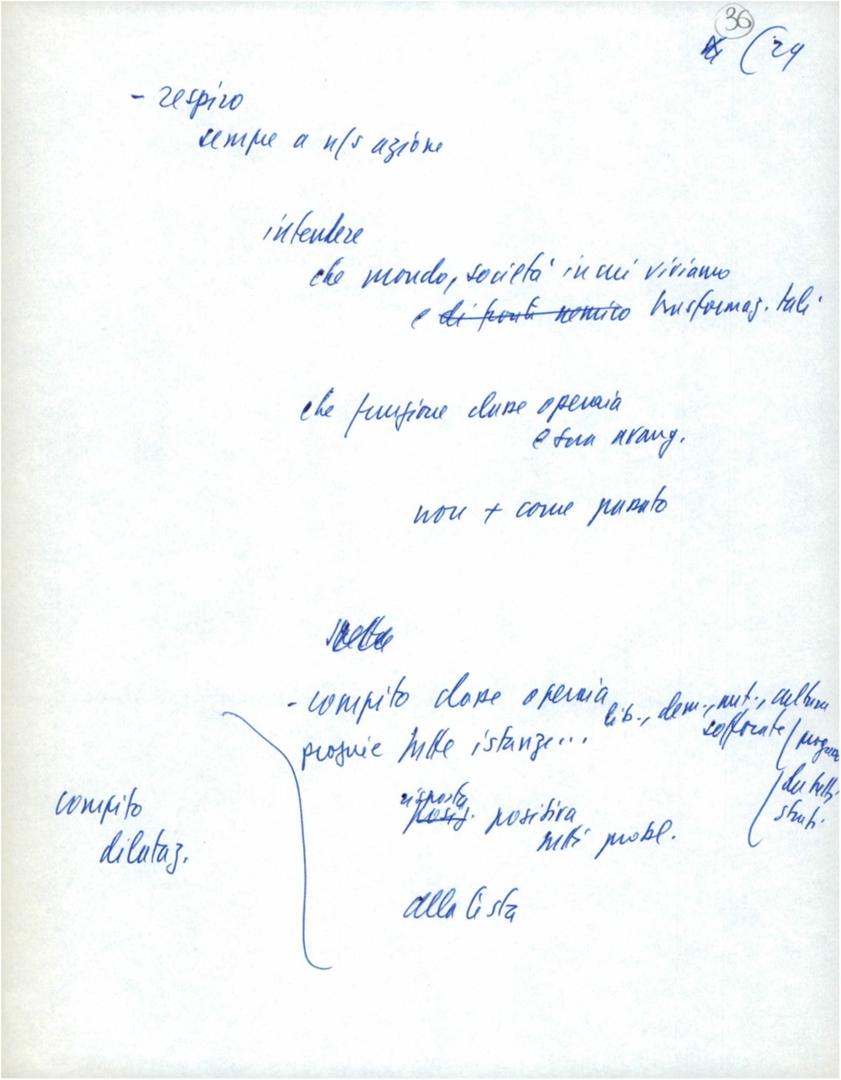 36
(24
- respiro
sempre a n/s azione
intendere
che mondo, società in cui viviamo
e di fronte nemico trasformaz. tali
che funzione classe operaia
e sua avang.
non + come passato
- compito classe operaia
lib., dem., naz., cultura
proprie tutte istanze... soffocate
da tutti
strati
risposta
posiz. positiva
tutti probl.
compito
dilataz.
alla testa